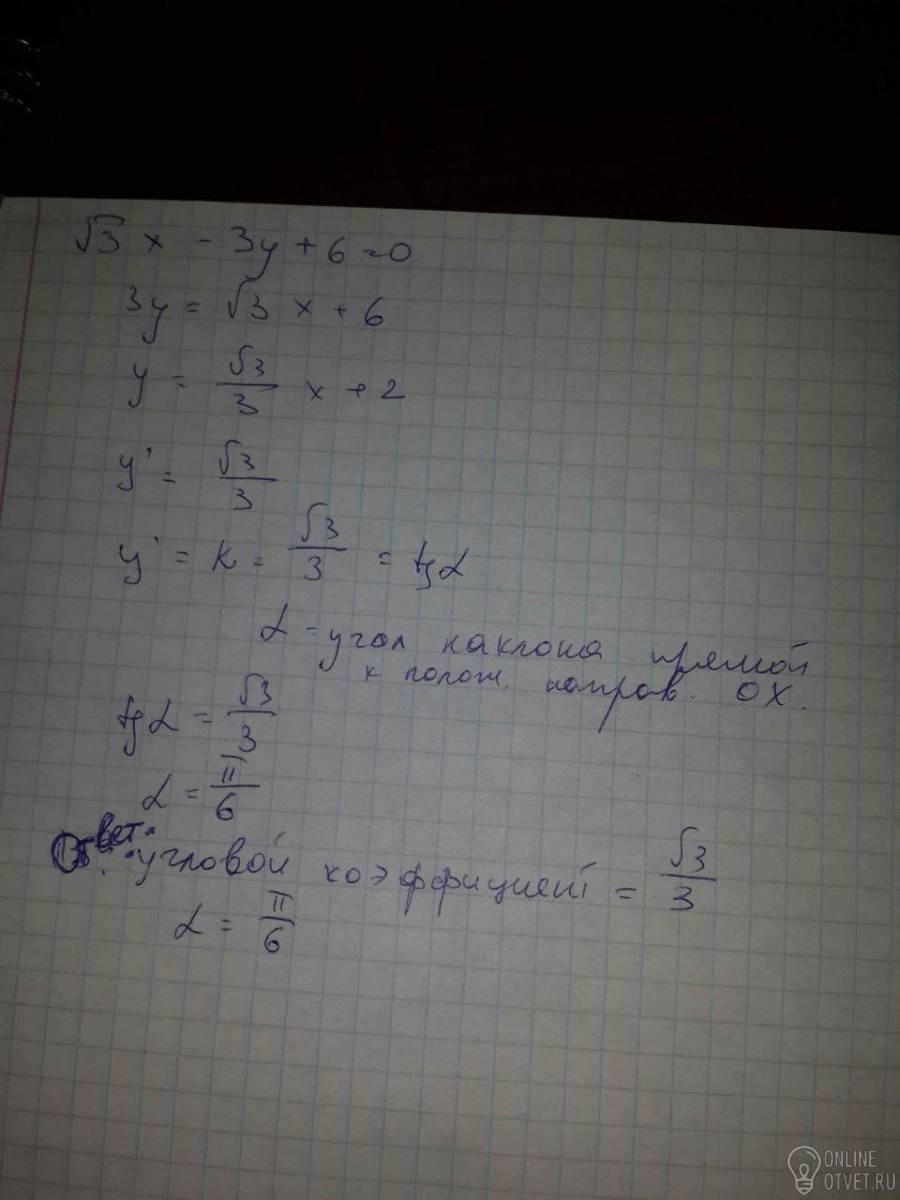 √3 x - 3y + 6 = 0
3y = √3 x + 6
y = √3/3 x + 2
y' = √3/3
y' = k = √3/3 = tg α
α - угол наклона прямой
к полож. направ. OX.
tg α = √3/3
α = π/6
Ответ: угловой коэффициент = √3/3
α = π/6
ONLINE
OTVET.RU